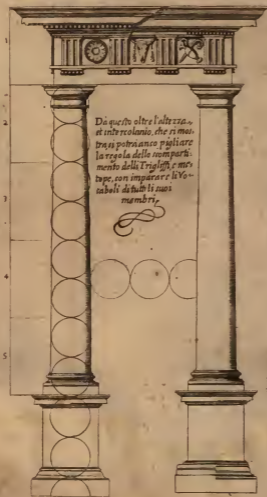 1
2
Da questo oltre l'altezza,
et intercolunio, che si mos-
tra, si potrà anco pigliare
la regola delle scomparti-
mento delli Trigliffi, e me-
tope, con imparare li Vo-
caboli di tutti li suoi
membri,
3
4
5